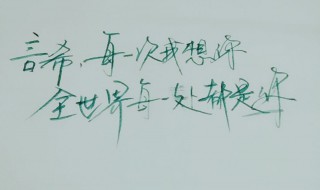 言希,每一次我想你
全世界每一处都是你